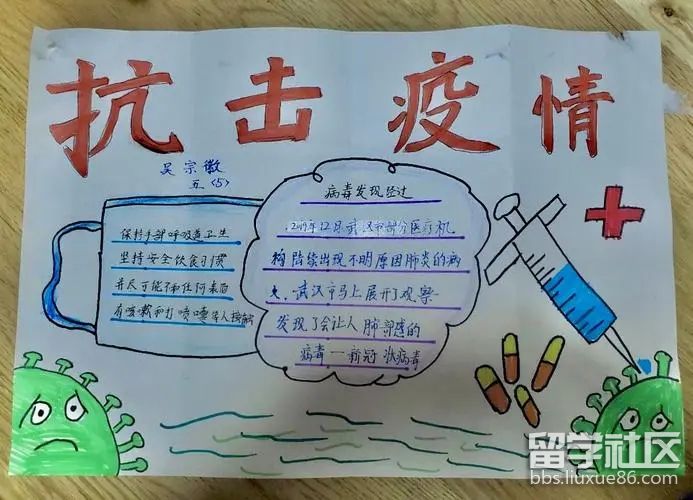 抗击疫情
吴宗徽
五〈5〉
保持手部呼吸道卫生
坚持安全饮食习惯
并尽可能不和任何表面
有咳嗽和打喷嚏等人接触
病毒发现经过
2019年12月武汉市部分医疗机
构陆续出现不明原因肺炎的病
人,武汉市马上展开了观察
发现了会让人肺部感的
病毒一新冠状病毒
留学社区
bbs.liuxue86.com